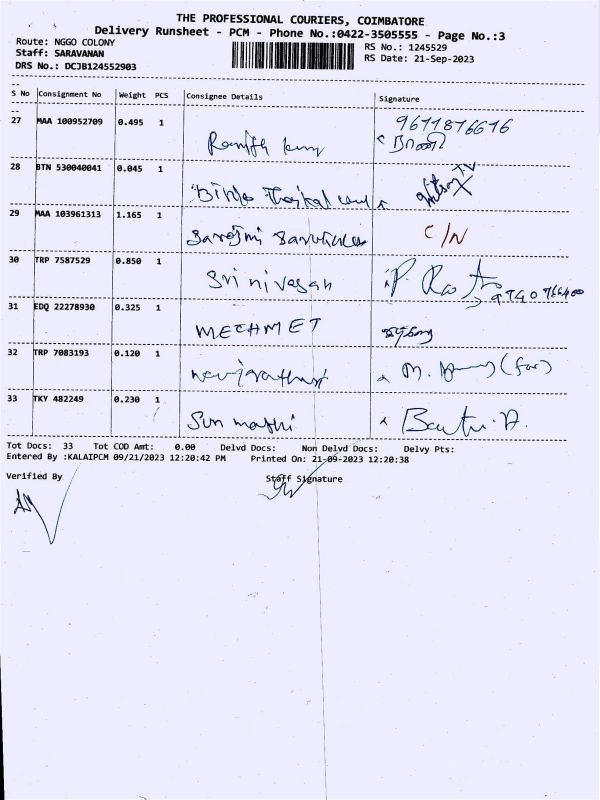 THE PROFESSIONAL COURIERS, COIMBATORE
Delivery Runsheet - PCM - Phone No.:0422-3505555 - Page No.:3
Route: NGGO COLONY
RS No.: 1245529
Staff: SARAVANAN
RS Date: 21-Sep-2023
DRS No.: DCJB124552903
S No Consignment No Weight PCS Consignee Details Signature
27 MAA 100952709 0.495 1 9677876676
28 BTN 530040041 0.045 1
29 MAA 103961313 1.165 1 C/N
30 TRP 7587529 0.850 1 Srinivasan
31 EDQ 22278930 0.325 1 MECHMET
32 TRP 7083193 0.120 1 (for)
33 TKY 482249 0.230 1 Sun mathi
Tot Docs: 33 Tot COD Amt: 0.00 Delvd Docs: Non Delvd Docs: Delvy Pts:
Entered By :KALAIPCM 09/21/2023 12:20:42 PM Printed On: 21-09-2023 12:20:38
Verified By Staff Signature